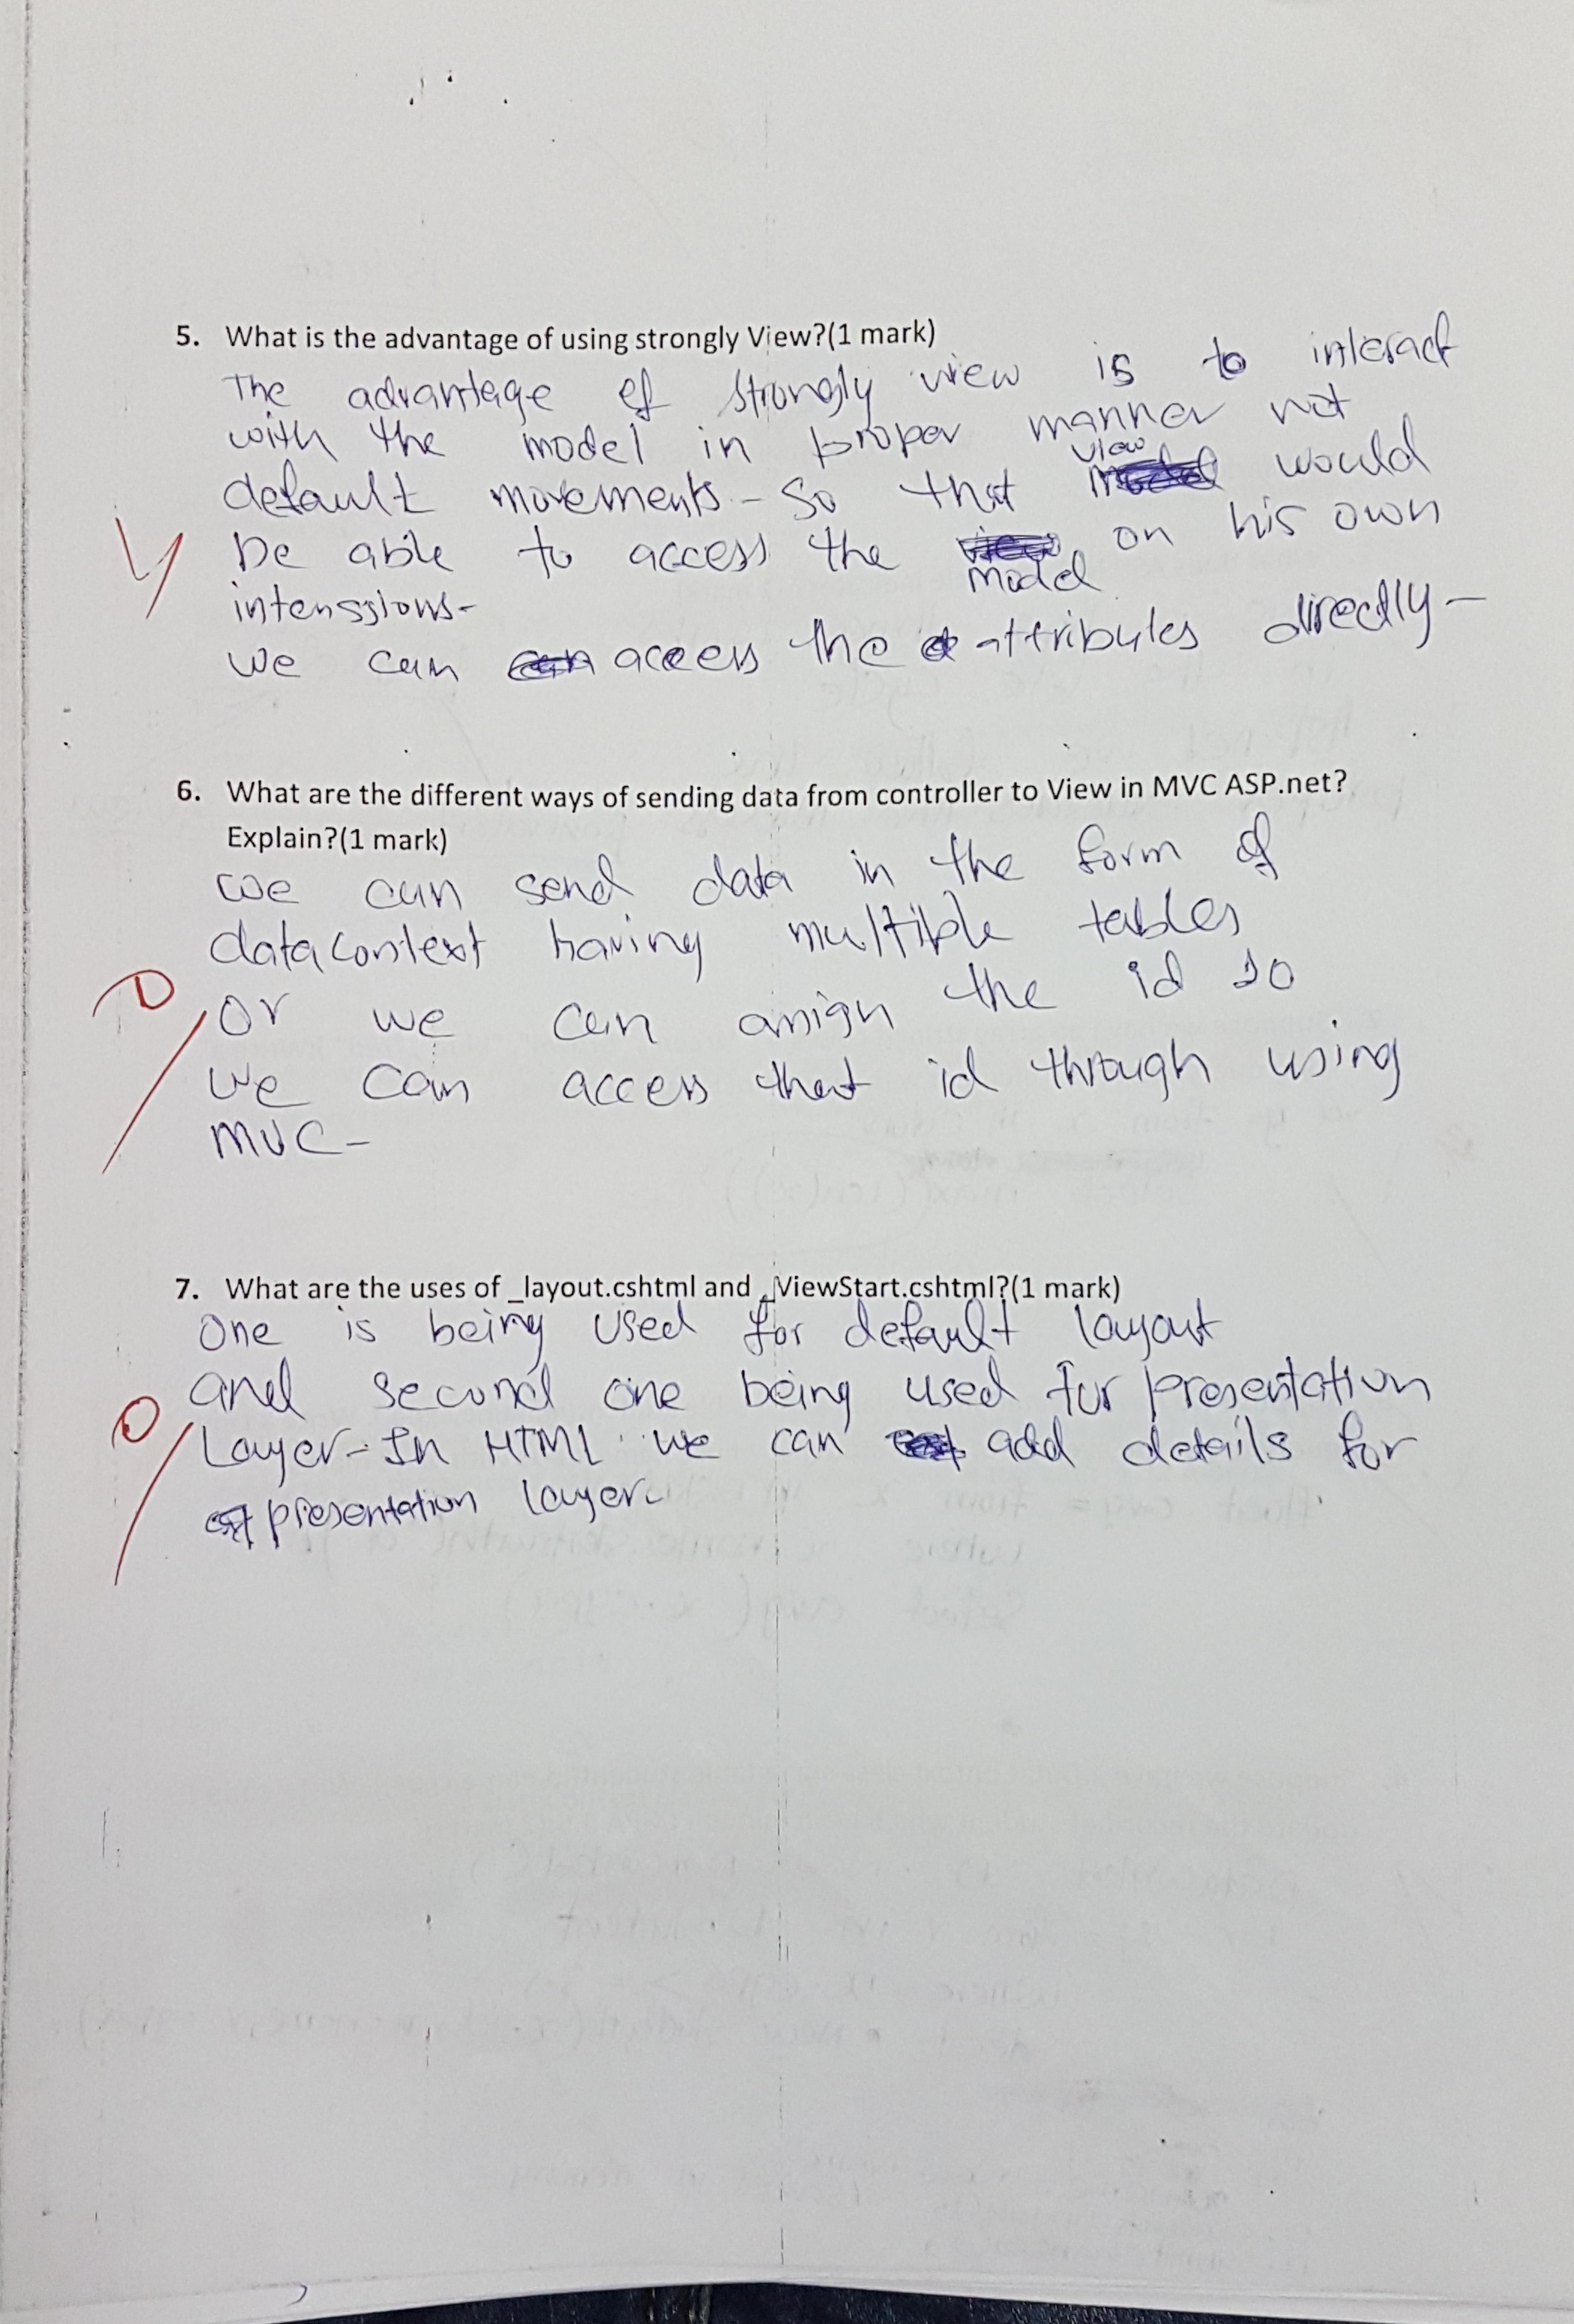 5. What is the advantage of using strongly View?(1 mark)
The advantage of strongly view is to interact
with the model in proper manner not
default movements - So that view would
be able to access the model on his own
intenssions-
we can access the attributes directly-
6. What are the different ways of sending data from controller to View in MVC ASP.net?
Explain?(1 mark)
we can send data in the form of
datacontext having multiple tables
0
or we can assign the id so
we can access that id through using
MVC-
7. What are the uses of _layout.cshtml and _ViewStart.cshtml?(1 mark)
One is being used for default layout
and second one being used for presentation
0
Layer- In HTML we can add details for
presentation layer-